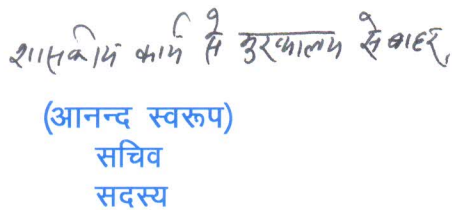 शासकीय कार्य से मुख्यालय से बाहर,
(आनन्द स्वरूप)
सचिव
सदस्य